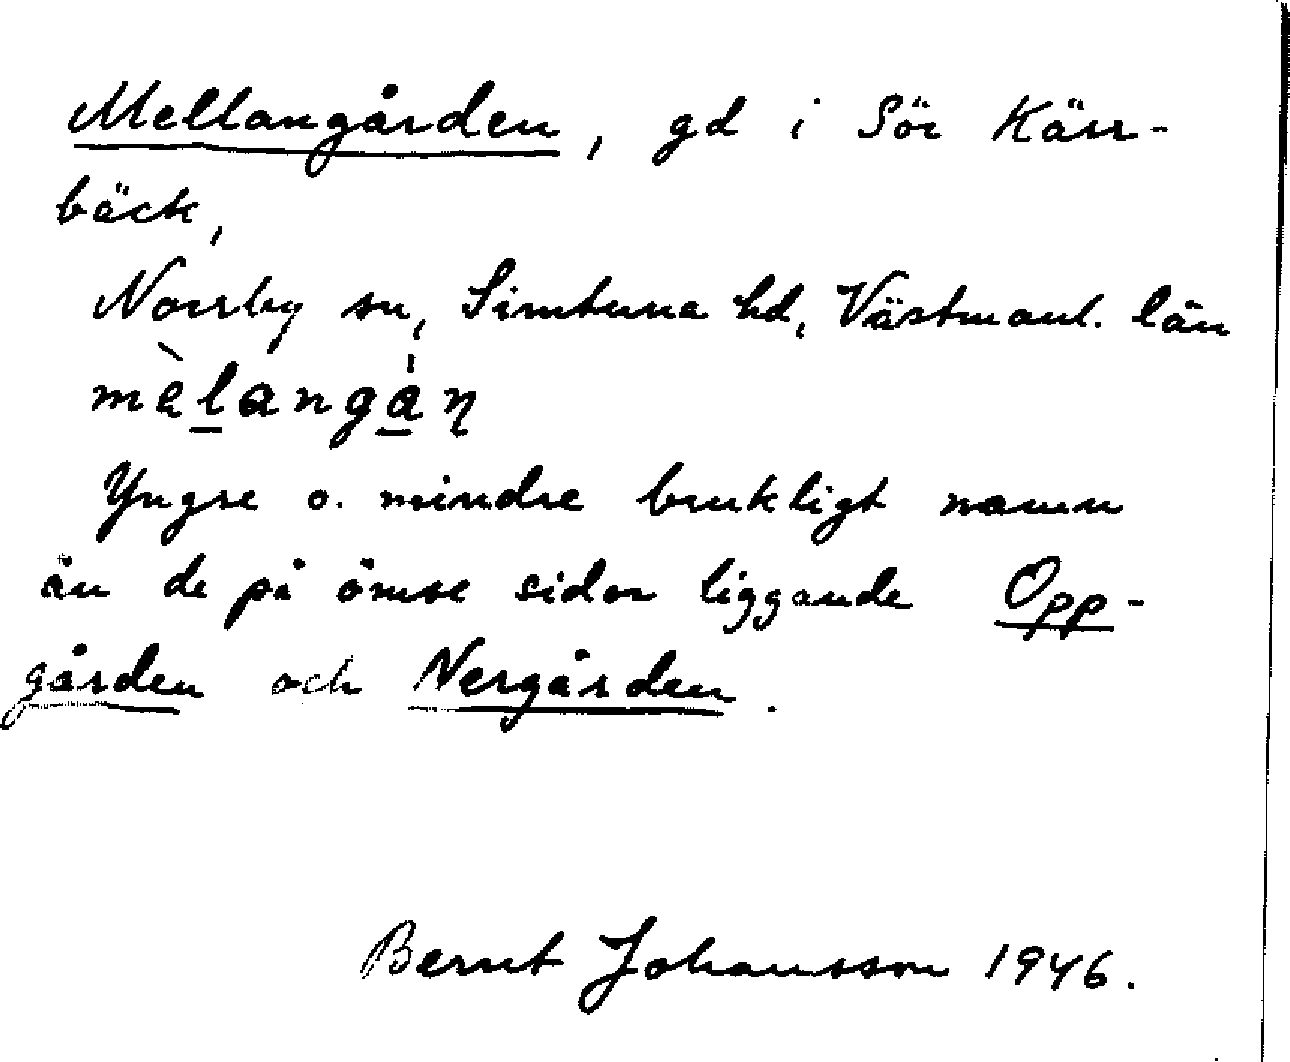 Mellangården, gd i Sör Kärr-
bäck,
Norrby sn, Simtuna hd, Västmanl. län
mèlangán
Yngre o. mindre brukligt namn
än de på ömse sidor liggande Opp-
gården och Nergården.
Bernt Johansson 1946.